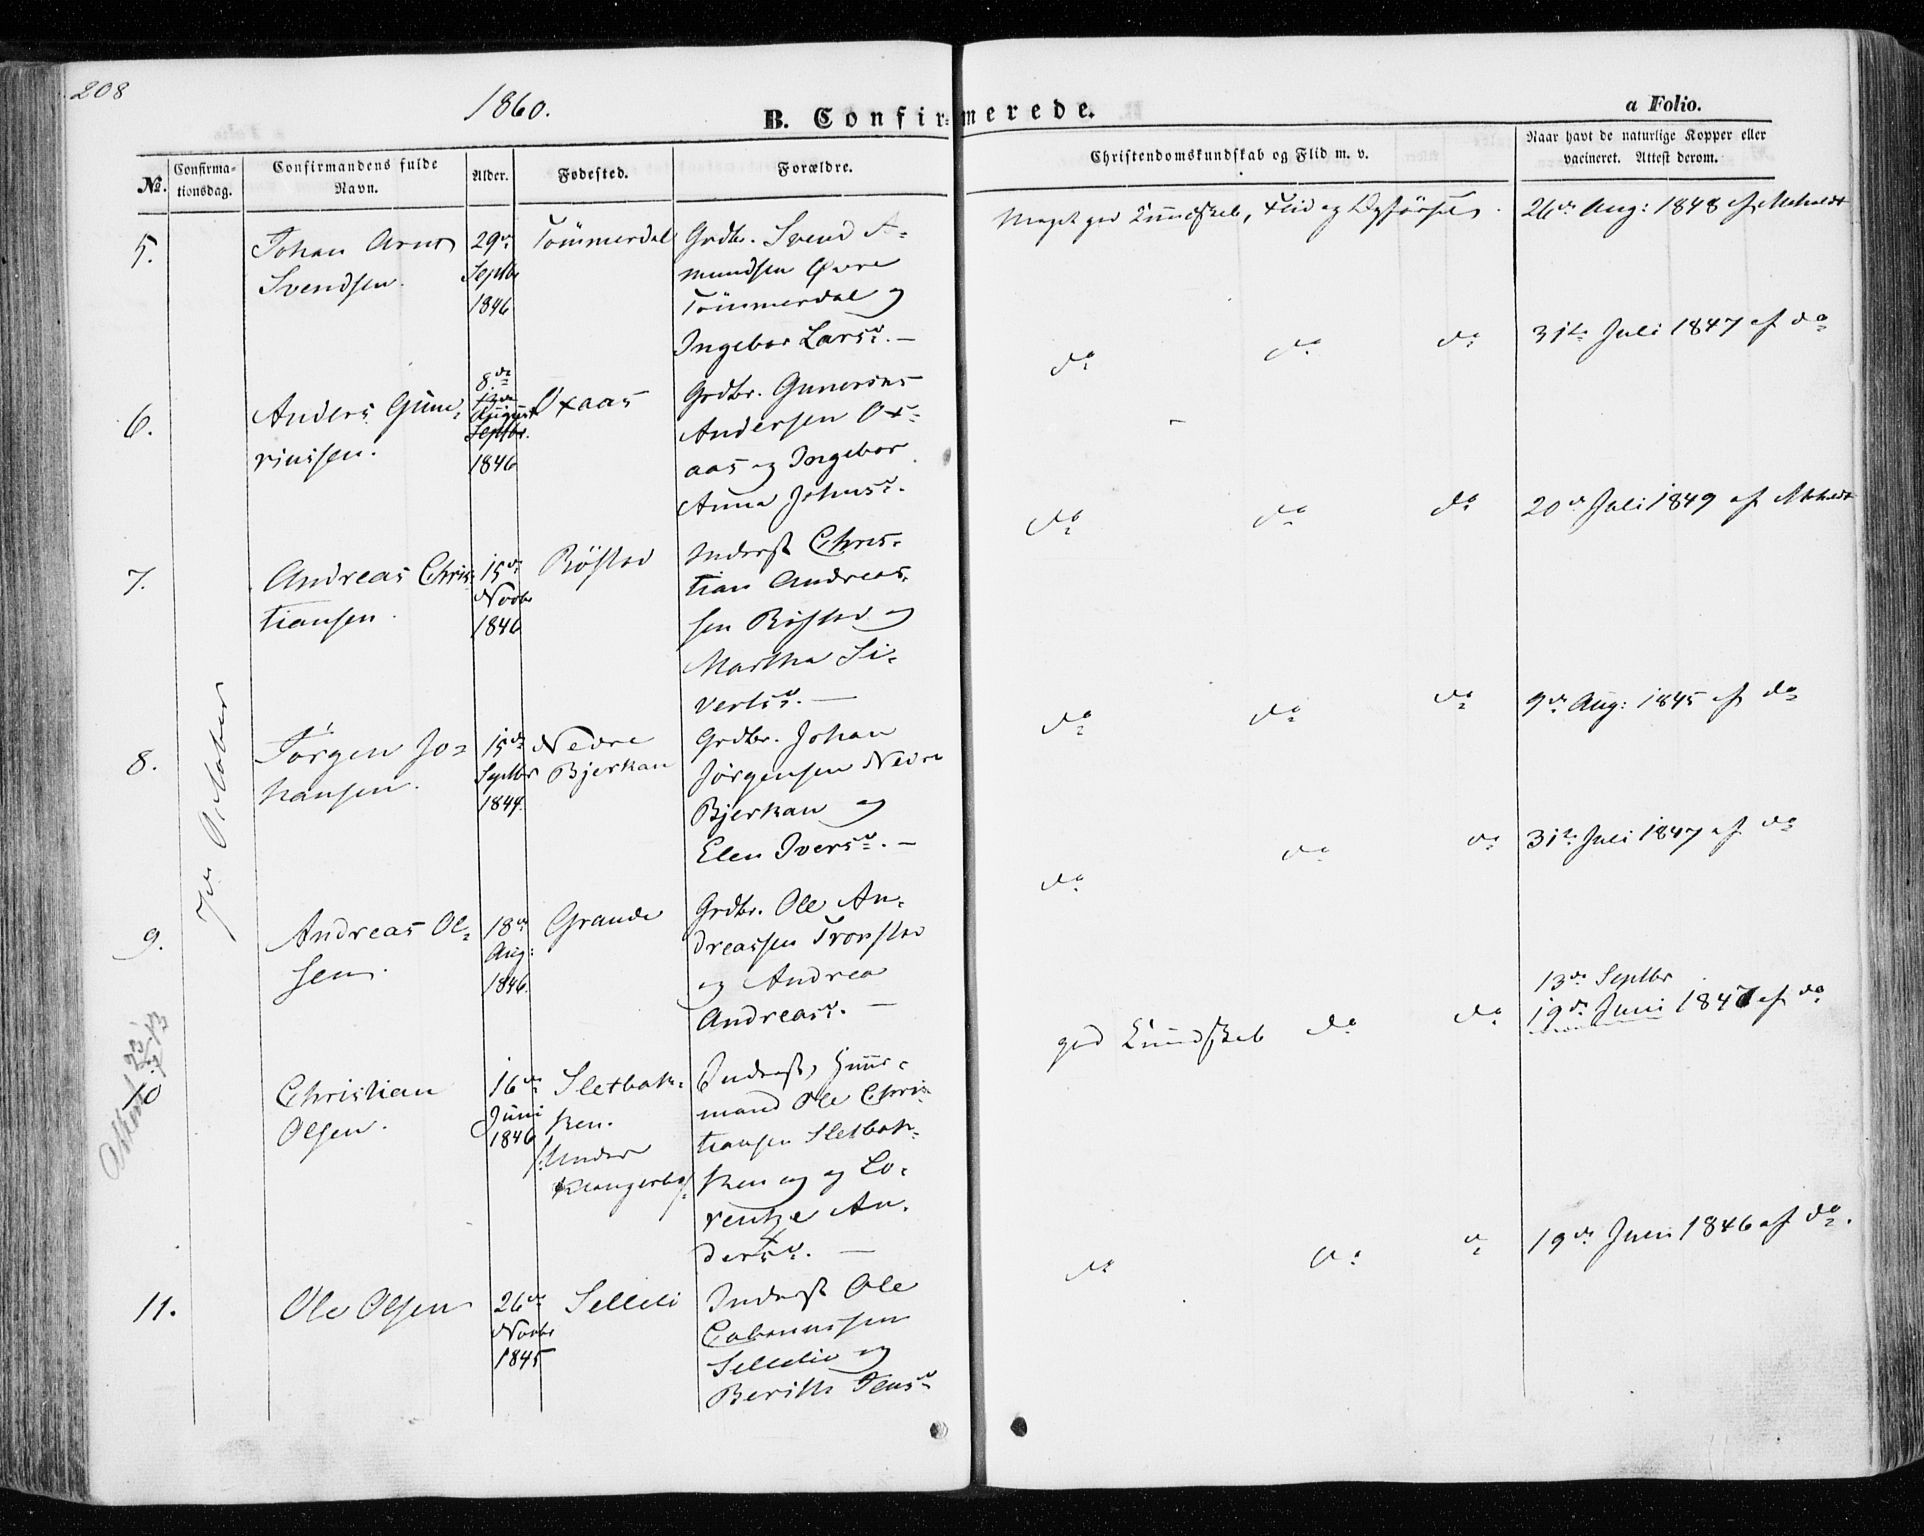 208
1860.
B. Confirmerede.
a Folio.
No.
Confirma-
tionsdag.
Confirmandens fulde
Navn.
Alder.
Fødested.
Forældre.
Christendomskundskab og Flid m. v.
Naar havt de naturlige Kopper eller
vacineret. Attest derom.
7de October
5.
Johan Arnt
Svendsen.
29de
Septbr
1846
Tömmerdal
Grdbr. Svend A-
mundsen Øvre
Tömmerdal og
Ingebor Larsd. —
Meget god Kundskab, Flid og Opförsel.
26de Aug: 1848 af
6.
Anders Gune-
riussen.
8de
13de
August
Septbr.
1846
Oxaas
Grdbr. Gunerius
Andersen Ox-
aas og Ingebor
Anna Johnsd.
do do do
31te Juli 1847 af do
7.
Andreas Chris-
tiansen.
15de
Novbr
1846
Röstad
Inderst Chris-
tian Andreas-
sen Röstad og
Martha Si-
vertsd. —
do do do
20de Juli 1849 af
8.
Jörgen Jo-
hansen.
15de
Septbr
1844.
Nedre
Bjerkan
Grdbr. Johan
Jörgensen Nedre
Bjerkan og
Elen Iversd. —
do do do
9de Aug: 1845 af do
9.
Andreas Ol-
sen.
18de
Aug:
1846.
Grande
Grdbr. Ole An-
dreassen Tronstad
og Andrea
Andreasd. —
do do do
31te Juli 1847 af do
10.
Christian
Olsen.
16de
Juni
1846
Sletbak-
ken.
/:under
Inderst, Huus-
mand Ole Chris-
tiansen Sletbak-
ken og og Lo-
rentze An-
dersd. —
god Kundskab do do
13de Septbr
19de Juni 1847 af do
11.
Ole Olsen
26de
Novbr
1845
Selleli
Inderst Ole
Selleli og
Berith Jensd
do do do
19de Juni 1846 af do.